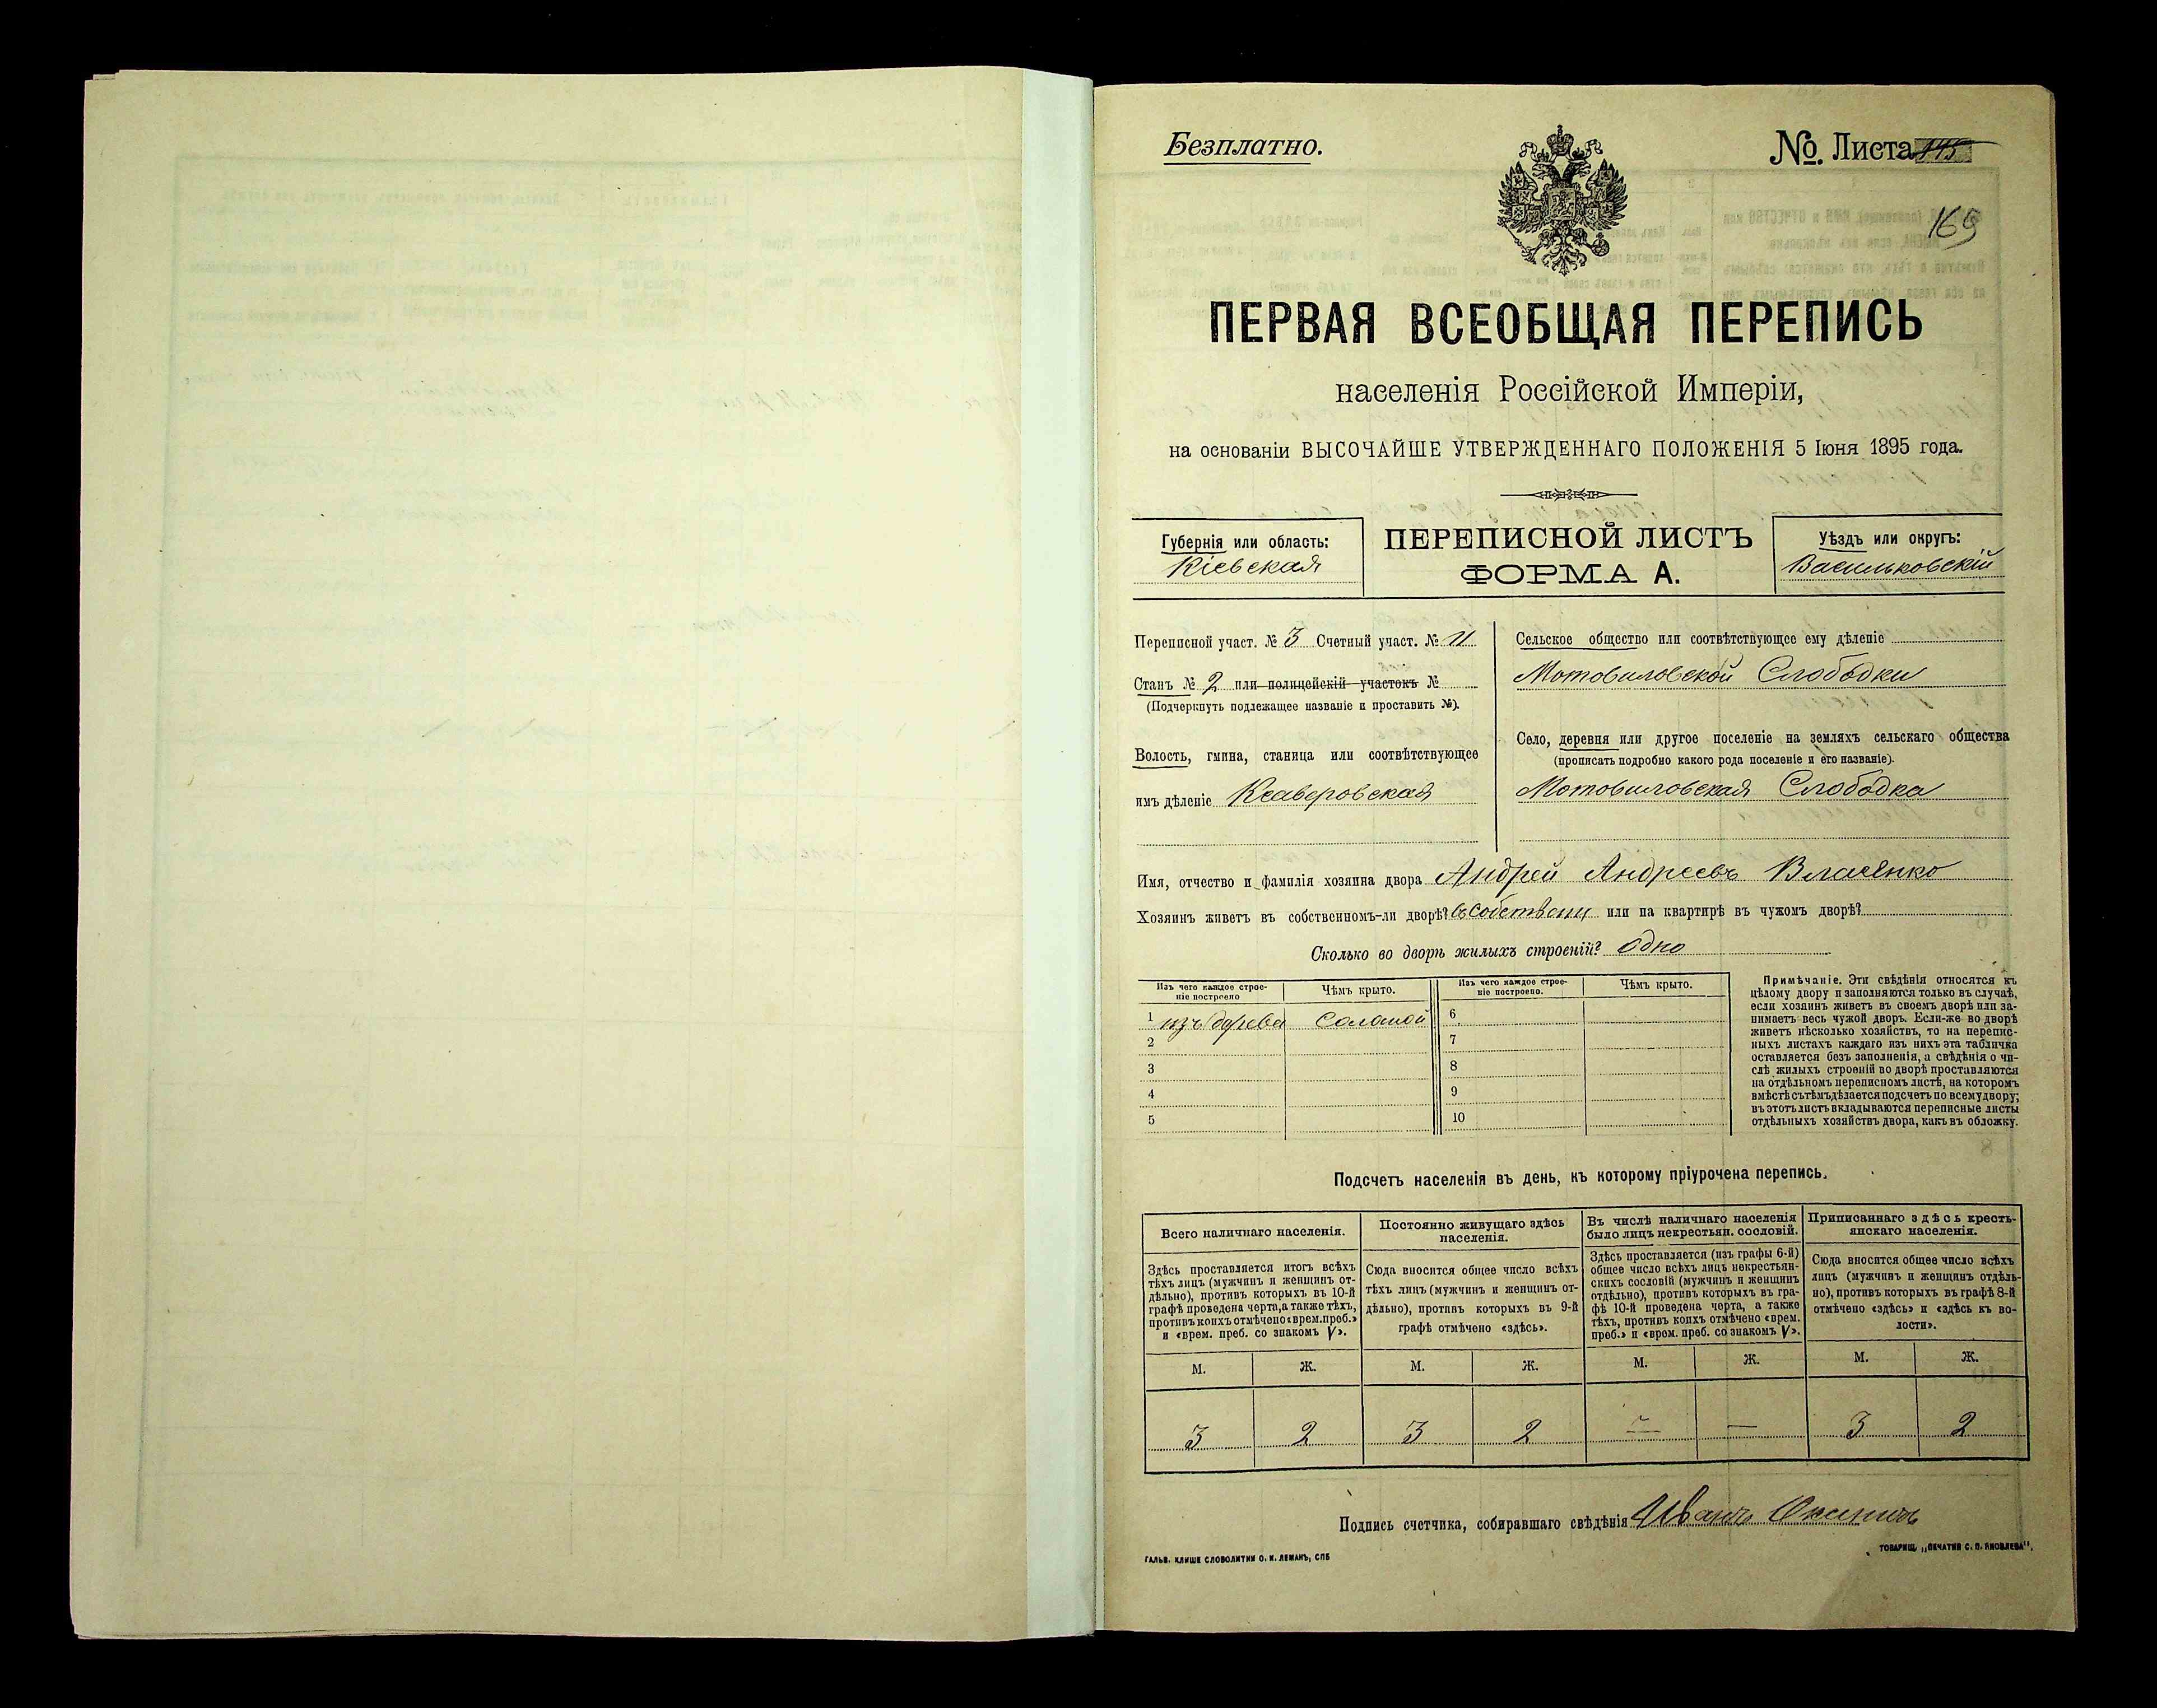 Безплатно.
№. Листа 145
169
ПЕРВАЯ ВСЕОБЩАЯ ПЕРЕПИСЬ
населенія Россійской Имперіи,
на основаніи ВЫСОЧАЙШЕ УТВЕРЖДЕННАГО ПОЛОЖЕНІЯ 5 Іюня 1895 года.
Губернія или область:
Кіевская
ПЕРЕПИСНОЙ ЛИСТЪ
ФОРМА А.
Уѣздъ или округъ:
Васильковскій
Переписной участ. № 3 Счетный участ. № 11
Станъ № 2 или полицейскій участокъ №
(Подчеркнуть подлежащее названіе и проставить №).
Волость, гмина, станица или соотвѣтствующее
имъ дѣленіе Ксаверовская
Сельское общество или соотвѣтствующее ему дѣленіе
Мотовиловской Слободки
Село, деревня или другое поселеніе на земляхъ сельскаго общества
(прописать подробно какого рода поселеніе и его названіе).
Мотовиловская Слободка
Имя, отчество и фамилія хозяина двора Андрей Андреевъ Власенко
Хозяинъ живетъ въ собственномъ-ли дворѣ? въ собствен или на квартирѣ въ чужомъ дворѣ?
Сколько во дворѣ жилыхъ строеній? одно
Изъ чего каждое строе-
ніе построено
Чѣмъ крыто.
Изъ чего каждое строе-
ніе построено.
Чѣмъ крыто.
1 изъ дерева соломой 6
2 7
3 8
4 9
5 10
Примѣчаніе. Эти свѣдѣнія относятся къ
цѣлому двору и заполняются только въ случаѣ,
если хозяинъ живетъ въ своемъ дворѣ или за-
нимаетъ весь чужой дворъ. Если-же во дворѣ
живетъ нѣсколько хозяйствъ, то на перепис-
ныхъ листахъ каждаго изъ нихъ эта табличка
оставляется безъ заполненія, а свѣдѣнія о чи-
слѣ жилыхъ строеній во дворѣ проставляются
на отдѣльномъ переписномъ листѣ, на которомъ
вмѣстѣ съ тѣмъ дѣлается подсчетъ по всему двору;
въ этотъ листъ вкладываются переписные листы
отдѣльныхъ хозяйствъ двора, какъ въ обложку.
Подсчетъ населенія въ день, къ которому пріурочена перепись.
Всего наличнаго населенія.
Здѣсь проставляется итогъ всѣхъ
тѣхъ лицъ (мужчинъ и женщинъ от-
дѣльно), противъ которыхъ въ 10-й
графѣ проведена черта, а также тѣхъ,
противъ коихъ отмѣчено «врем. преб.»
и «врем. преб. со знакомъ V».
Постоянно живущаго здѣсь
населенія.
Сюда вносится общее число всѣхъ
тѣхъ лицъ (мужчинъ и женщинъ от-
дѣльно), противъ которыхъ въ 9-й
графѣ отмѣчено «здѣсь».
Въ числѣ наличнаго населенія
было лицъ некрестьян. сословій.
Здѣсь проставляется (изъ графы 6-й)
общее число всѣхъ лицъ некрестьян-
скихъ сословій (мужчинъ и женщинъ
отдѣльно), противъ которыхъ въ гра-
фѣ 10-й проведена черта, а также
тѣхъ, противъ коихъ отмѣчено «врем.
преб.» и «врем. преб. со знакомъ V».
Приписаннаго здѣсь кресть-
янскаго населенія.
Сюда вносится общее число всѣхъ
лицъ (мужчинъ и женщинъ отдѣль-
но), противъ которыхъ въ графѣ 8-й
отмѣчено «здѣсь» и «здѣсь къ во-
лости».
М. Ж. М. Ж. М. Ж. М. Ж.
3 2 3 2 — — 3 2
Подпись счетчика, собиравшаго свѣдѣнія Иванъ
ГАЛЬВ. КЛИШЕ СЛОВОЛИТНИ О. И. ЛЕМАНЪ, СПБ
ТОВАРИЩ. „ПЕЧАТНЯ С. П. ЯКОВЛЕВА".